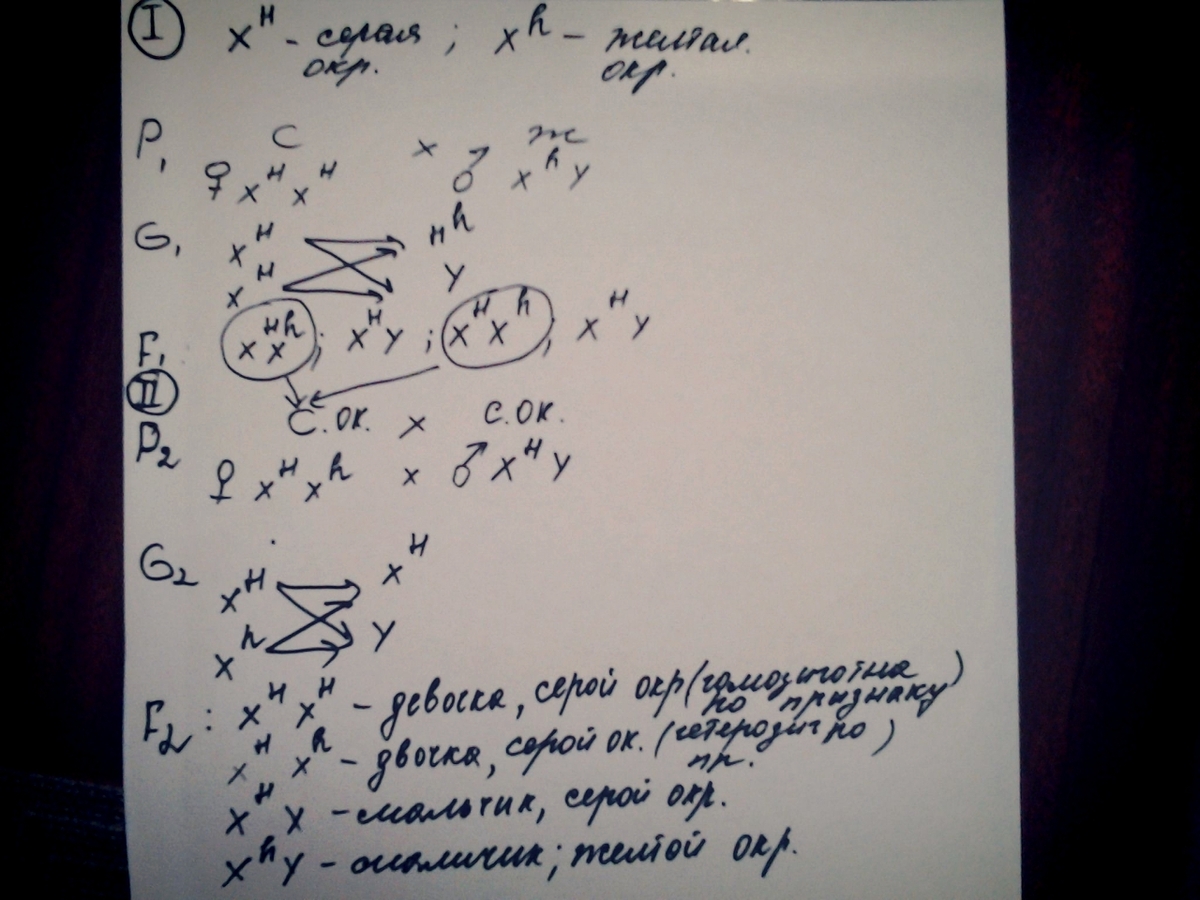 I X^H - серая ; X^h - желтая.
окр. окр.
P₁ С × ж
♀ X^H X^H ♂ X^h Y
G₁ X^H H^h
X^H Y
F₁ X X^Hh ; X^H Y ; X^H X^h ; X^H Y
II С.ок. × с.ок.
P₂ ♀ X^H X^h × ♂ X^H Y
G₂ X^H X^H
X^h Y
F₂ : X^H X^H - девочка, серой окр (гомозиготна
по признаку)
X^H X^h - двочка, серой ок. (гетерозиг по
пр.)
X^H Y - мальчик, серой окр.
X^h Y - мальчик; желтой окр.